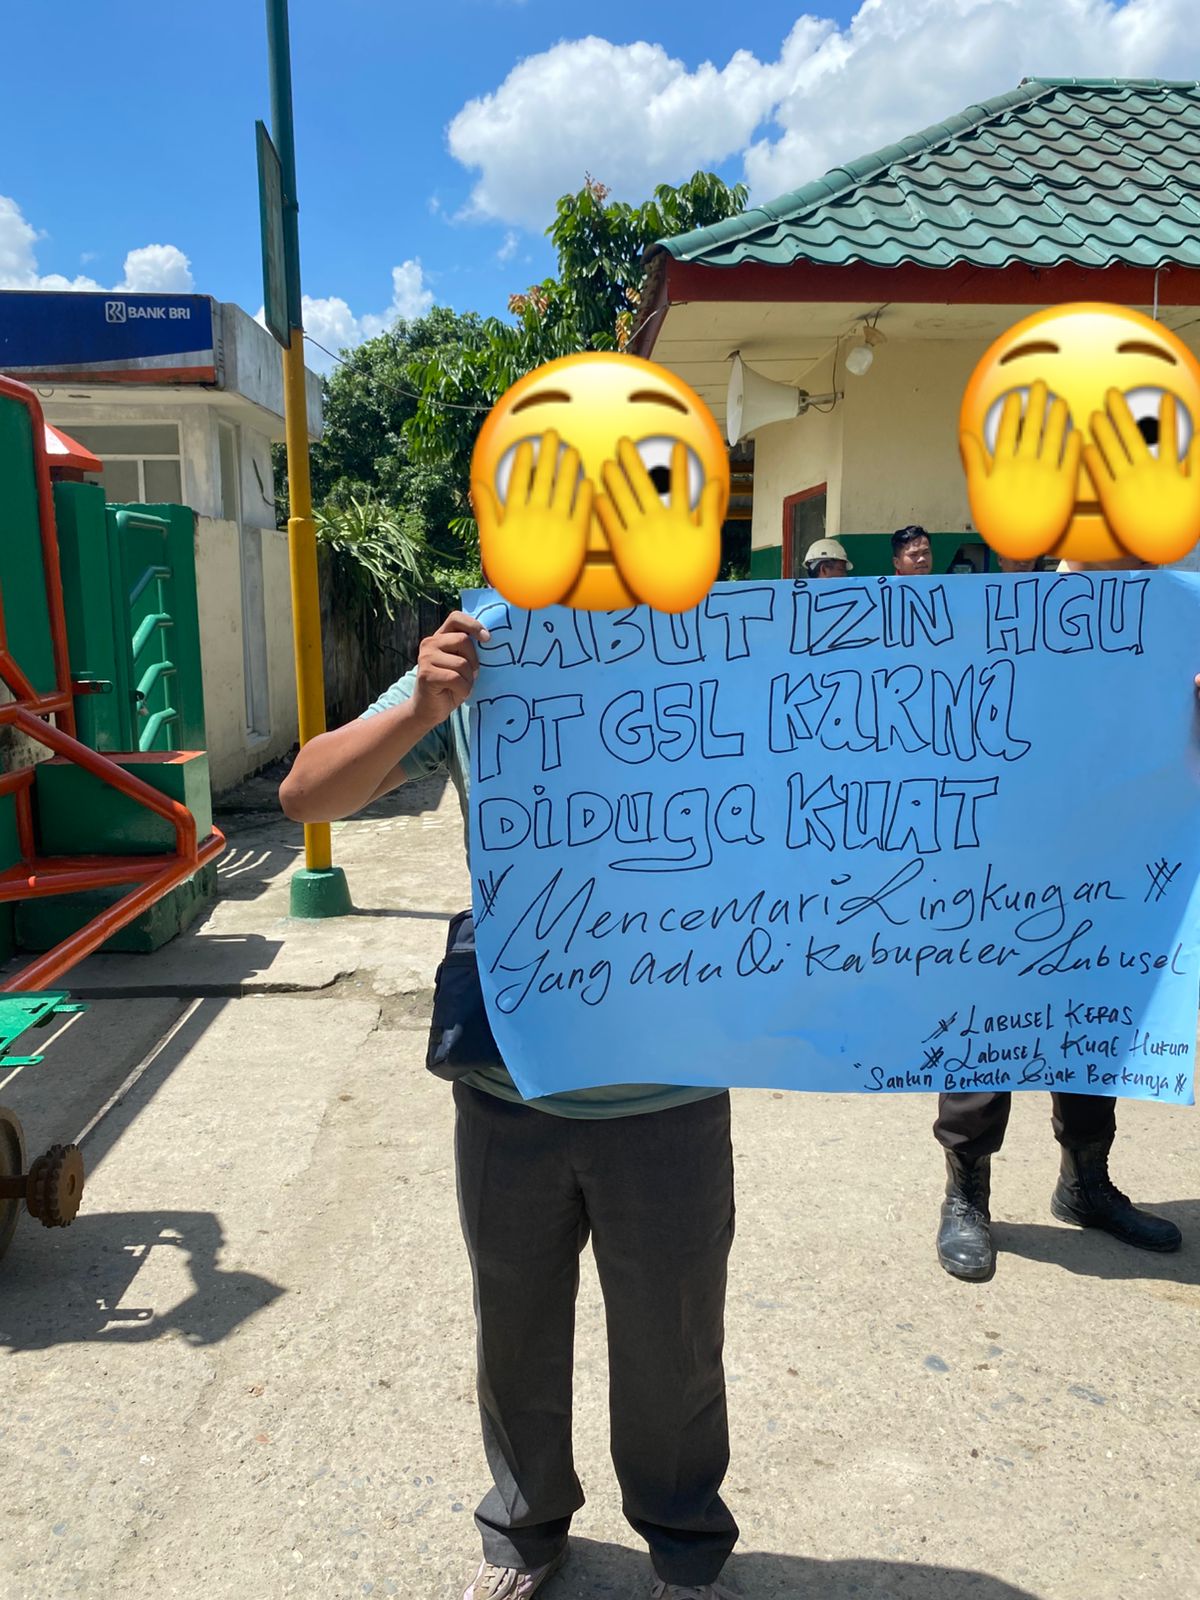 BANK BRI
CABUT IZIN HGU
PT GSL KARNA
DIDUGA KUAT
Mencemari Lingkungan
Yang ada Di Kabupaten Labusel
LABUSEL KERAS
Labusel Kuat Hukum
"Santun Berkata Bijak Berkarya